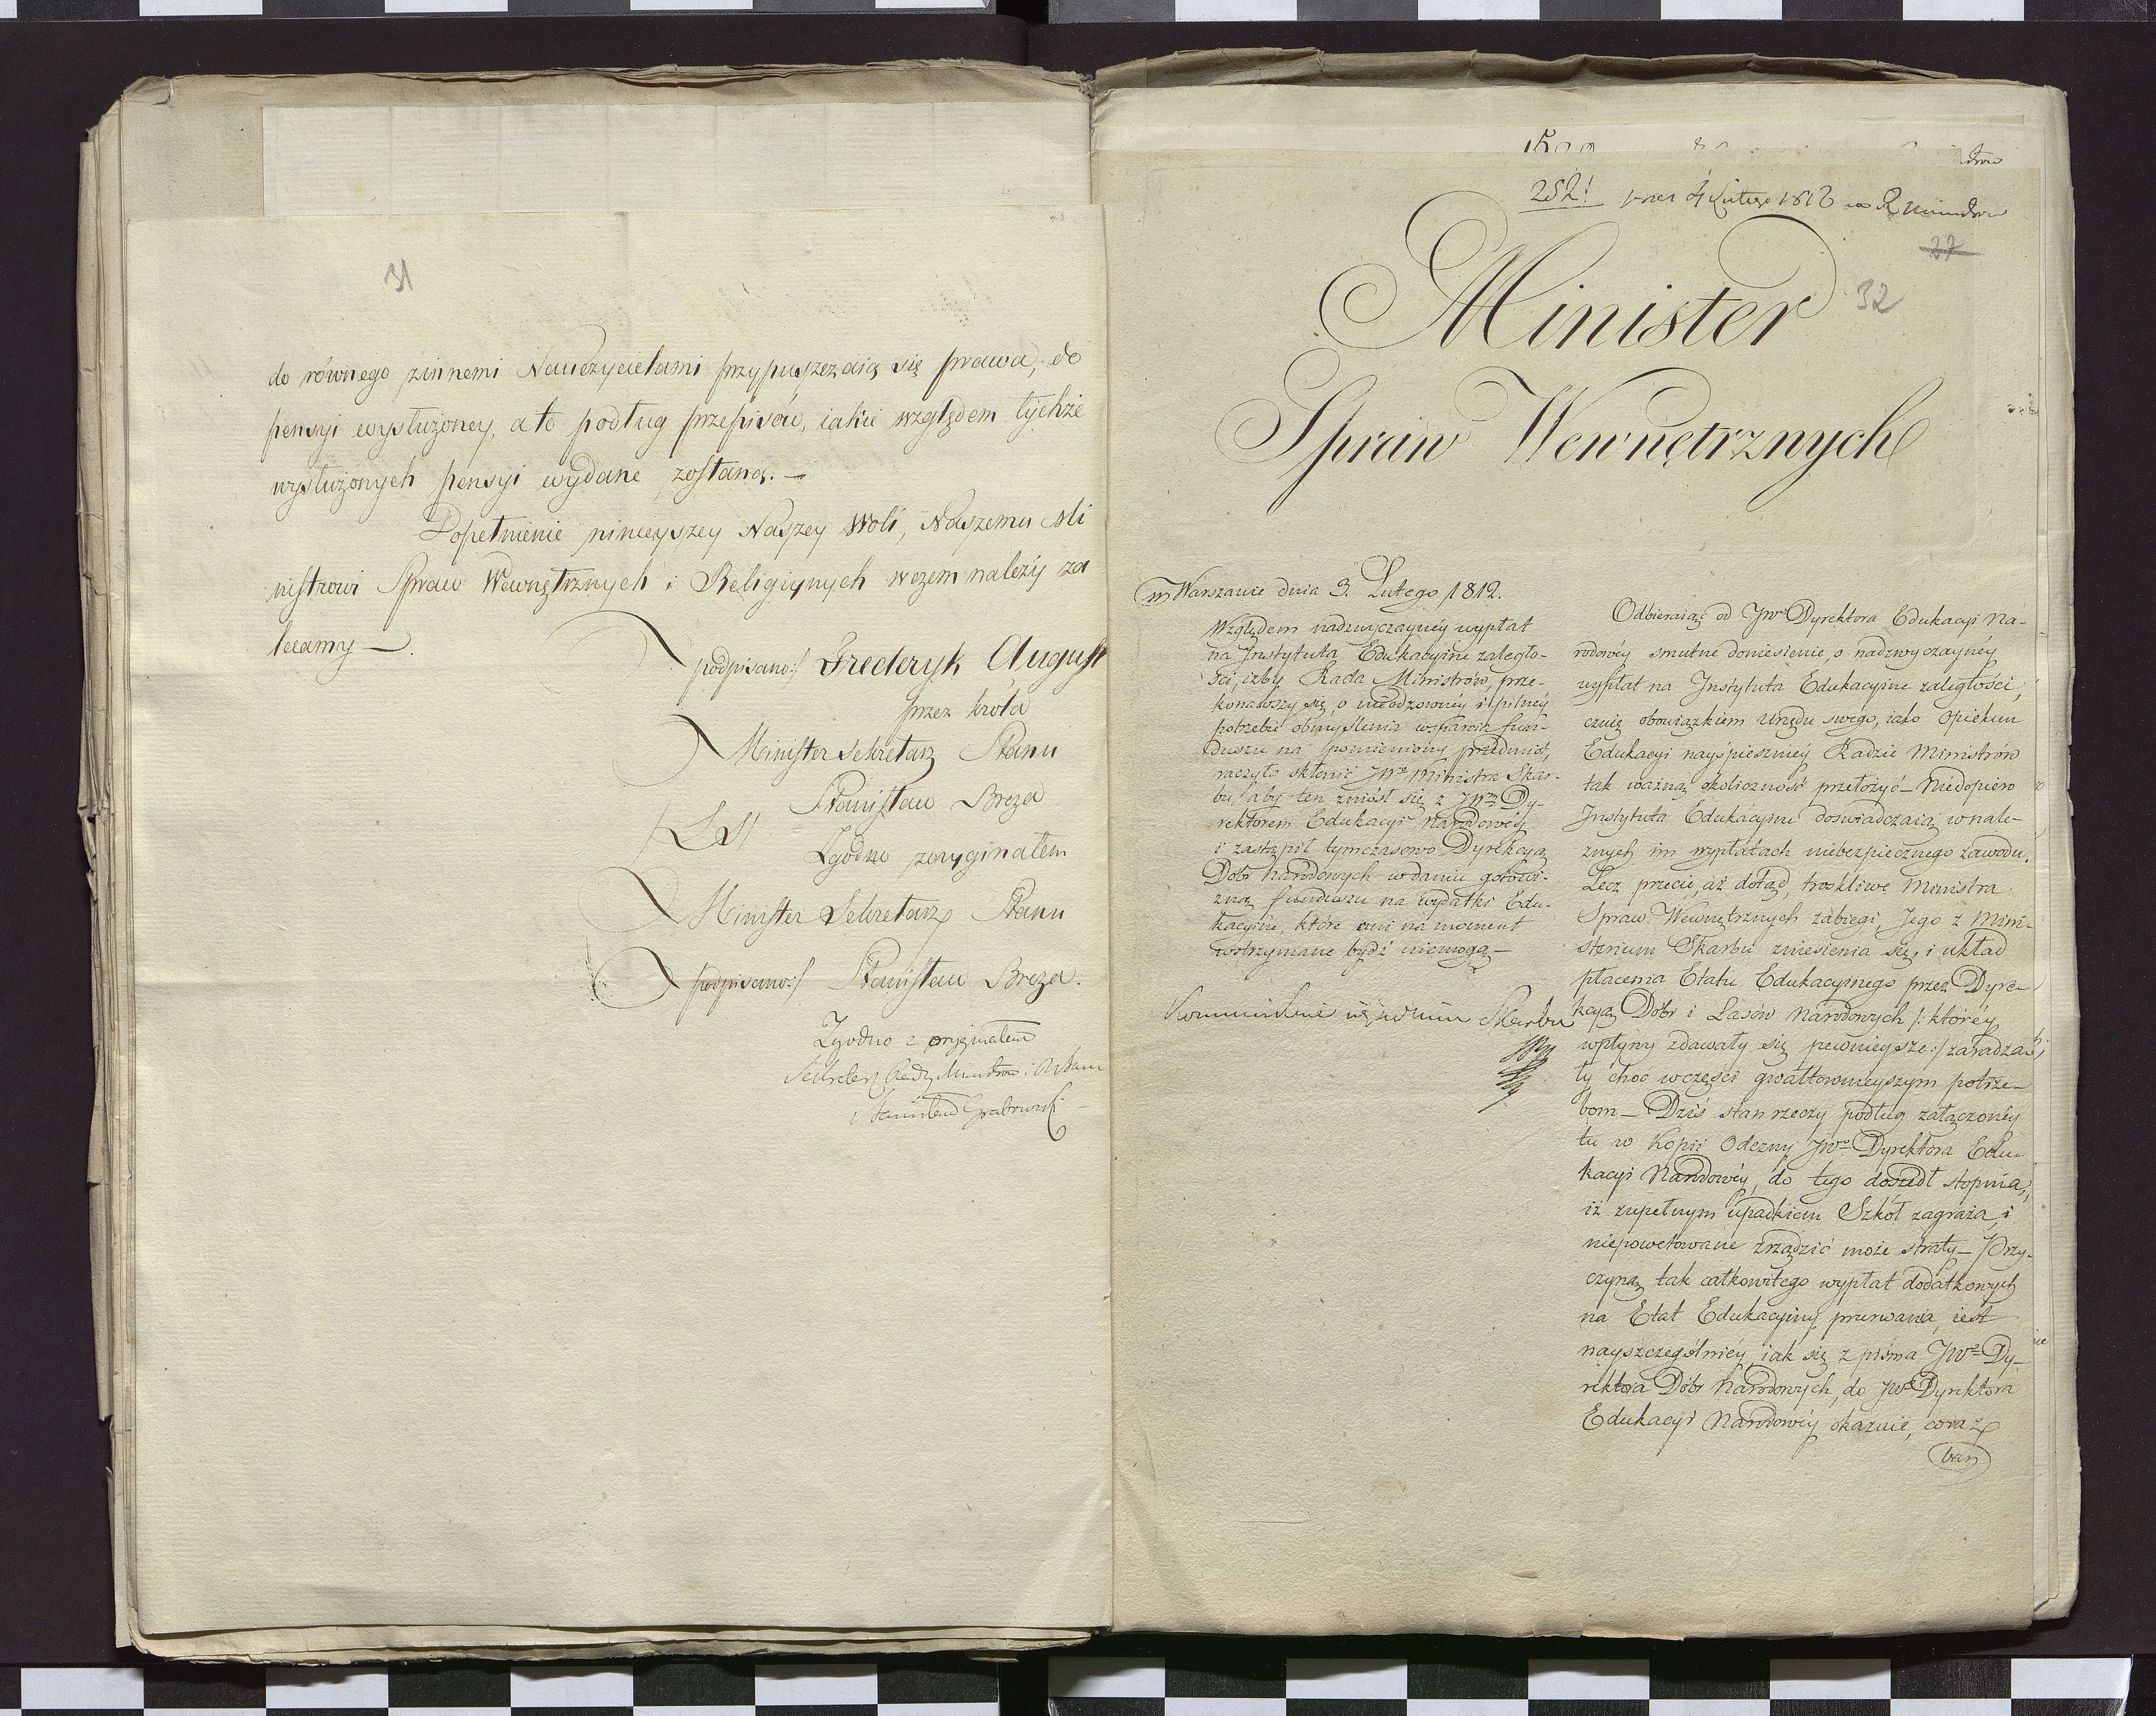 31
do równego zinnemi Nauczycielami przypuszczaią się prawa, do
pensyi wysłużoney, a to podług przepisów, iakie względem tychże
wysłużonych pensyi wydane zostaną. —
Dopełnienie ninieyszey Naszey Woli, Naszemu Mi
nistrowi Spraw Wewnętrznych i Religiynych wczem należy za
lecamy —.
podpisano:/ Frederyk August
przez Króla
Minister Sekretarz Stanu
Stanisław Breza
/LS/
Zgodno zoryginałem
Minister Sekretarz Stanu
podpisano:/ Stanisław Breza.
Zgodno z oryginałem
Sekretarz Rady Ministrów i Stanu
Stanisław Grabowski
252! 4 Lutego 1812 R Ministrów
27
32
Minister
Spraw Wewnętrznych
w Warszawie dnia 3. Lutego 1812.
Względem nadzwyczayney wypłat
na Instytuta Edukacyine zaległo-
ści, iżby Rada Ministrów, prze-
konawszy się, o nieodzowney i pilney
potrzebie obmyślenia wsparcia fun-
duszu na pomieniony przedmiot,
raczyła skłonić JWo Ministra Skar-
bu, aby ten zniósł się z JWm Dy-
rektorem Edukacyi Narodowéy
i zastąpił tymczasowo Dyrekcyą
Dóbr Narodowych w daniu gotowi-
zną funduszu na wydatki Edu-
kacyine, które ani na moment
wstrzymane bydź niemogą —
Skarbu
Odbieraiąc od JWo Dyrektora Edukacyi Na-
rodowéy smutne doniesienie, o nadzwyczaynéy
wypłat na Instytuta Edukacyine zaległości,
czuię obowiązkiem Urzędu swego, iako Opiekun
Edukacyi nayśpieszniéy Radzie Ministrów
tak ważną okoliczność przełożyć — Niedopiero
Instytuta Edukacyine doświadczaią w nale-
żnych im wypłatach niebezpiecznego zawodu.
Lecz przecie, aż dotąd, troskliwe Ministra
Spraw Wewnętrznych zabiegi, Jego z Mini-
sterium Skarbu zniesienia się, i układ
płacenia Etatu Edukacyinego przez Dyre-
kcyą Dóbr i Lasów Narodowych /: któréy
wpłyny zdawały się pewnieysze :/ zaradza-
ły choć w części gwałtownieyszym potrze-
bom — Dziś stan rzeczy podług załączonéy
tu w Kopii Odezwy JWo Dyrektora Edu-
kacyi Narodowéy, do tego doszedł stopnia,
iż zupełnym upadkiem Szkół zagraża, i
niepowetowane zrządzić może straty — Przy-
czyną tak całkowitego wypłat dodatkowych
na Etat Edukacyiny przerwania, iest
nayszczególniéy, iak się z pisma JWo Dy-
rektora Dóbr Narodowych, do JWo Dyrektora
Edukacyi Narodowéy okazuie, coraz
bar